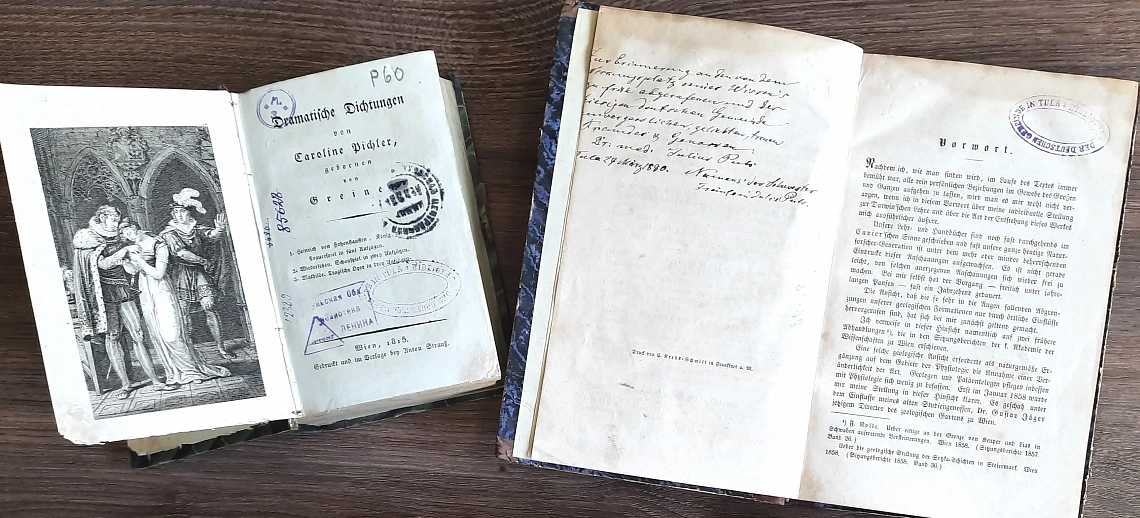 P60
Dramatische Dichtungen
von
Caroline Pichler,
gebornen
von
Greiner
85628
1. Heinrich von Hohenstauffen, König
Trauerspiel in fünf Aufzügen.
2. Wiedersehen. Schauspiel in zwey Aufzügen.
3. Mathilde. Tragische Oper in drey Aufzügen.
ЛЕНИНА
Wien, 1815.
Gedruckt und im Verlage bey Anton Strauß.
Zur Erinnerung an den von dem
seines Wirkens
zu früh abgerufenen und der
hiesigen deutschen Gemeinde
unvergesslichen, geliebten, treuen
Freundes u. Genossen:
Dr. med. Julius
Tula 29 März 1890. Namens der Schwester
Fräulein Julie
Druck von C. Krebs-Schmitt in Frankfurt a. M.
GEMEINDE IN TULA BIBLIOTHEK DER DEUTSCHEN
Vorwort.
Nachdem ich, wie man finden wird, im Laufe des Textes immer
bemüht war, alle rein persönlichen Beziehungen im Gewebe des Großen
und Ganzen aufgehen zu lassen, wird man es mir wohl nicht ver-
argen, wenn ich in diesem Vorwort über meine individuelle Stellung
zur Darwin'schen Lehre und über die Art der Entstehung dieses Werkes
mich ausführlicher äußere.
Unsere Lehr- und Handbücher sind noch fast durchgehends im
Cuvier'schen Sinne geschrieben und fast unsere ganze heutige Natur-
forscher-Generation ist unter dem mehr oder minder beherrschenden
Eindruck dieser Anschauungen aufgewachsen. Es ist nicht gerade
leicht, von solchen anerzogenen Anschauungen sich wieder frei zu
machen. Bei mir selbst hat der Vorgang — freilich unter jahre-
langen Pausen — fast ein Jahrzehend gedauert.
Die Ansicht, daß die so sehr in die Augen fallenden Abgren-
zungen unserer geologischen Formationen nur durch örtliche Einflüsse
hervorgerufen sind, hat sich bei mir zunächst geltend gemacht.
Ich verweise in dieser Hinsicht namentlich auf zwei frühere
Abhandlungen*), die in den Sitzungsberichten der k. Akademie der
Wissenschaften zu Wien erschienen.
Eine solche geologische Ansicht erforderte als naturgemäße Er-
gänzung auf dem Gebiete der Physiologie die Annahme einer Ver-
änderlichkeit der Art. Geologen und Paläontologen pflegen indessen
mit Physiologie sich wenig zu befassen. Erst im Januar 1858 wurde
mir meine Stellung in dieser Hinsicht klarer. Es geschah unter
dem Einflusse meines alten Studiengenossen, Dr. Gustav Jäger
jetzigem Director des zoologischen Gartens zu Wien.
*) F. Rolle. Ueber einige an der Grenze von Keuper und Lias in
Schwaben auftretende Versteinerungen. Wien 1858. (Sitzungsberichte 1857.
Band 26.)
Ueber die geologische Stellung der Sotzka-Schichten in Steiermark. Wien
1858. (Sitzungsberichte 1858. Band 30.)